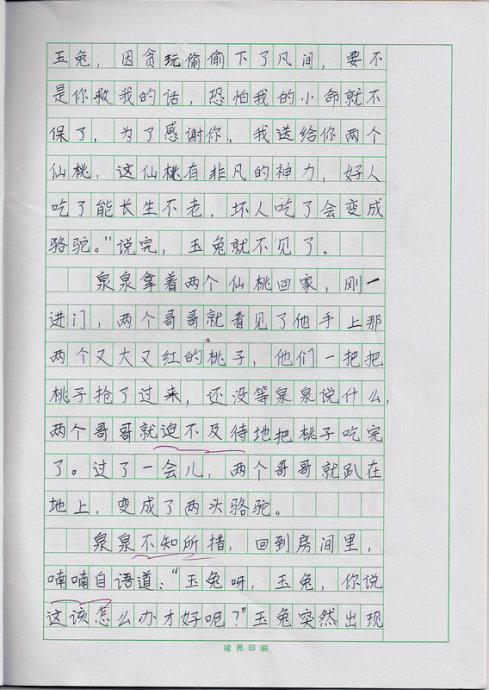 玉兔，因贪玩偷偷下了凡间，要不
是你救我的话，恐怕我的小命就不
保了，为了感谢你，我送给你两个
仙桃，这仙桃有非凡的神力，好人
吃了能长生不老，坏人吃了会变成
骆驼。”说完，玉兔就不见了。
泉泉拿着两个仙桃回家，刚一
进门，两个哥哥就看见了他手上那
两个又大又红的桃子，他们一把把
桃子抢了过来，还没等泉泉说什么，
两个哥哥就迫不及待地把桃子吃完
了。过了一会儿，两个哥哥就趴在
地上，变成了两头骆驼。
泉泉不知所措，回到房间里，
喃喃自语道：“玉兔呀，玉兔，你说
这该怎么办才好呢？”玉兔突然出现
竣昇印刷